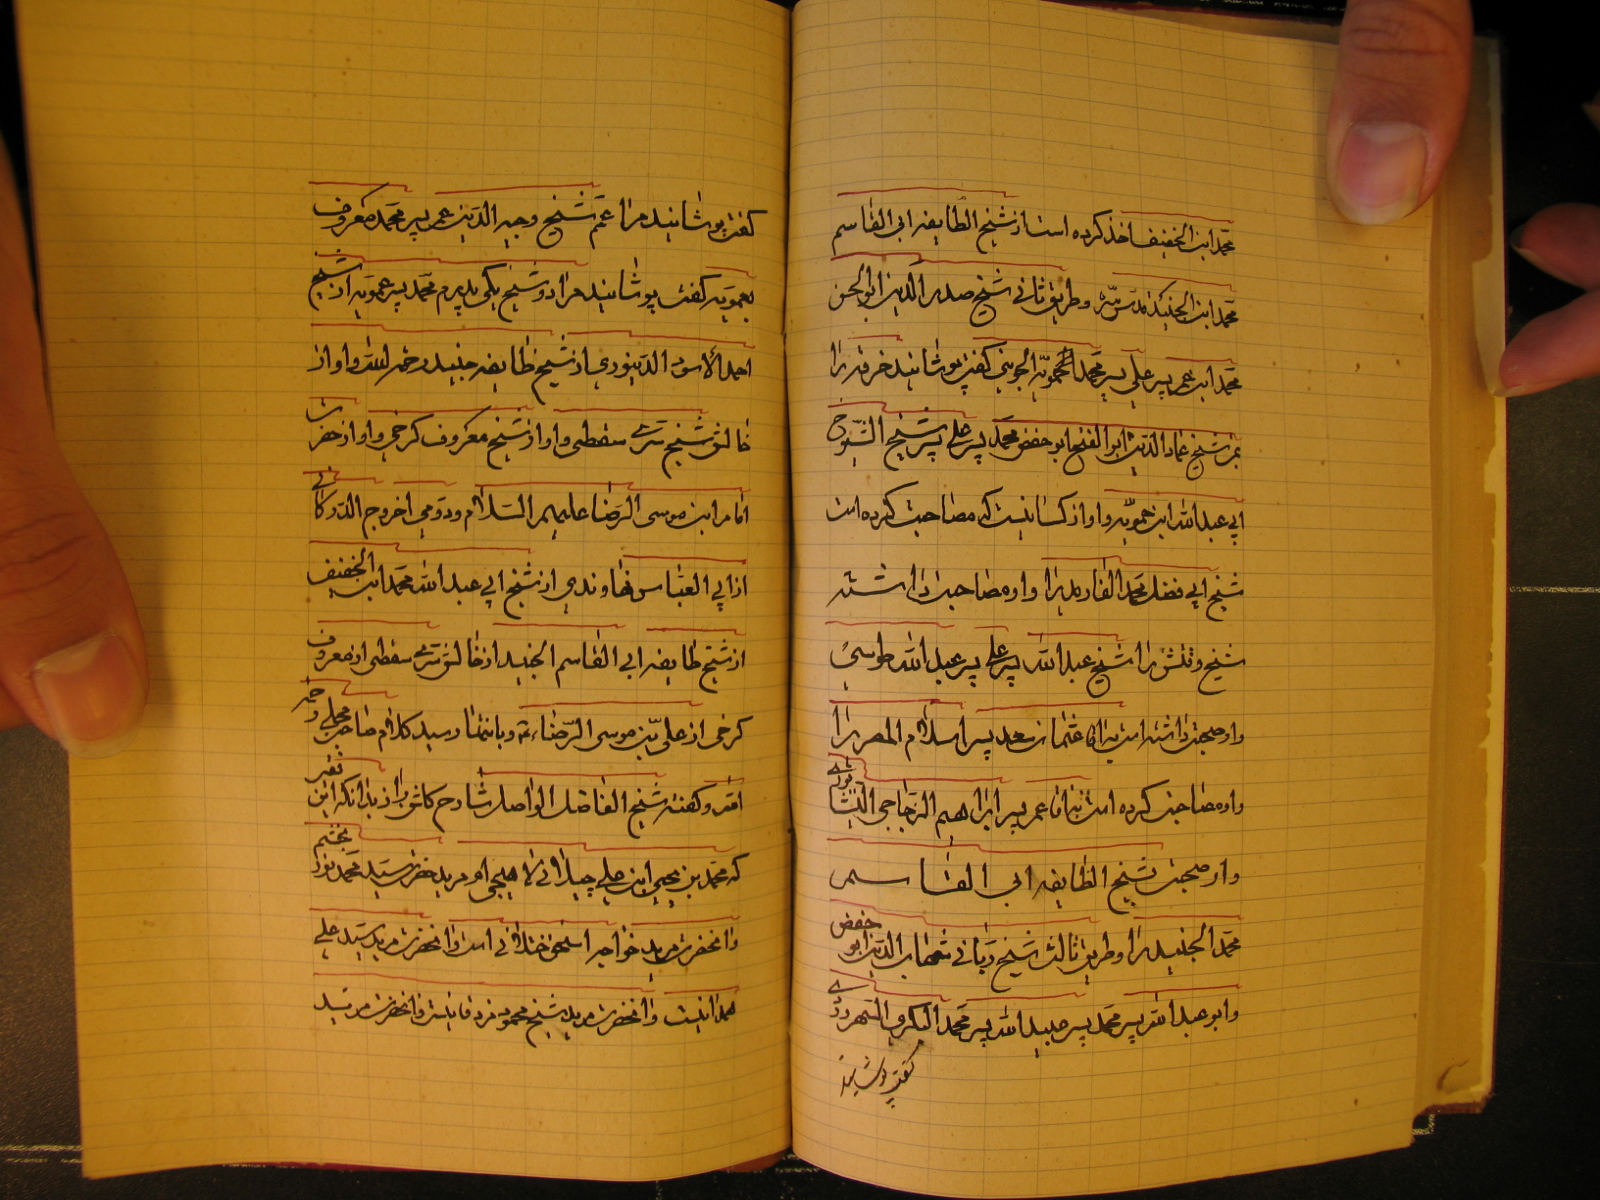 محمد ابن الخفیف اخذ کرده است از شیخ الطایفه ابی القاسم
محمد ابن الجنید قدس سرّه وطریق ثانی شیخ صدر الدین ابو الحسن
محمد ابن عمر پسر علی پسر محمد الحمویّه الجوینی کفت پوشانید خرقه را
بمن شیخ عماد الدین ابو الفتح ابو حفض محمد پسر علی پسر شیخ الشیوخ
ابی عبد الله ابن حمویّه واو از کسانیست که مصاحبت کرده است
شیخ ابی فضل محمد الفارمدیرا واو مصاحبت داشته
شیخ وقتش را شیخ عبد الله پسر علی پسر عبد الله طوسیُ
واو صحبت داشته است عثمان سعد پسر اسلام المصریرا
واو مصاحبت کرده است عمر پسر ابراهیم الزجاجی
واو صحبت شیخ الطایفه ابی القاسم
محمد الجنید را وطریق ثالث شیخ ربانی شهاب الدین ابو حفض
وابو عبد الله پسر محمد پسر عبید الله پسر محمد البکری السهروردی
کفت پوشانید
کفت پوشانید مرا عمّم شیخ وجیه الدین عمر پسر محمد معروف
بعمویه کفت پوشانید مرا دو شیخ یکی پدرم محمد پسر عمویه از شیخ
احمد الاسود الدینوری از شیخ طایفه جنید رحمه الله واو از
خالش شیخ سری سقطی واو از شیخ معروف کرخی واو از حضرت
امام ابن موسی الرضا علیهم السلام ودومی اخروج الذرکانی
از ابی العباس نهاوندی از شیخ ابی عبد الله محمد ابن الخفیف
از شیخ طایفه ابی القاسم الجنید از خالش سری سقطی از معروف
کرخی از علی بن موسی الرّضا وبانتها رسید کلام صاحب
وکفته شیخ الفاضل الواصل شارح این فقیر
که محمد بن یحیی ابن علی جیلانی لاهیجی او مرید حضرت سید محمد نور بخشم
وانحضرت مرید خواجه اسحق ختلانی است وانحضرت مرید سید علی
همدانیست وانحضرت مرید شیخ محمود مزدقانیست وانحضرت مرید